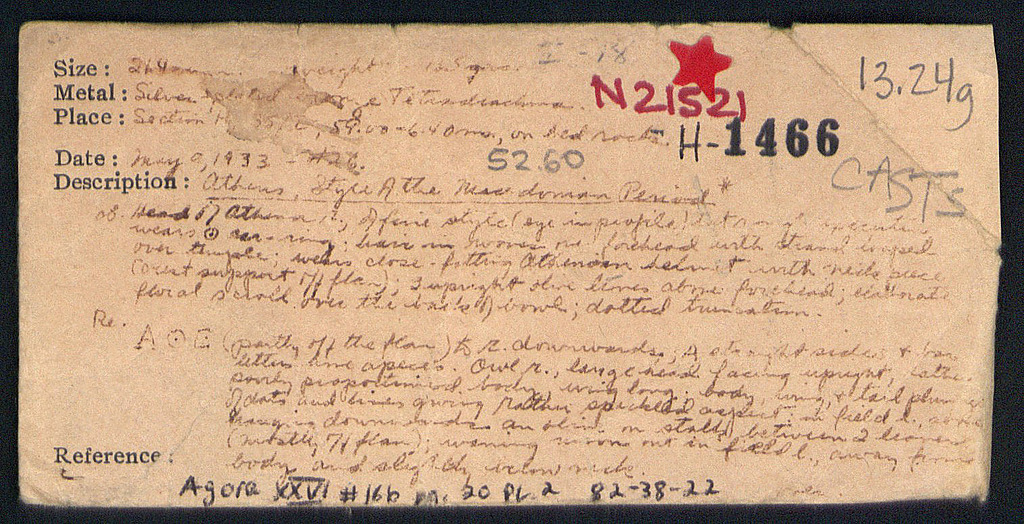 I-18
Size: weight
13.24g
Metal: Silver plated Tetradrachma.
N21521
Place: Section on bed rock.
H-1466
Date: May 9, 1933 - #26.
52.60
CASTS
Description: Athens, Style of the Macedonian Period*
ob. Head of Athena r., of fine style (eye in profile) but
wears ear-ring; hair in waves on forehead with strand looped
over temple; wears close-fitting Athenian helmet with neck piece
(crest support off flan); 3 upright olive leaves above forehead; elaborate
floral scroll over the back of bowl; dotted truncation.
Re.
Α Θ Ε (partly off the flan) to r. downwards; straight sides & bar
letters and apices. Owl r., large head facing upright, rather
poorly proportioned body, wing long; body, wing, & tail plumage
of dots and lines giving rather speckled aspect; in field l.,
hanging downwards an olive on stalk between 2 leaves
(mostly off flan); waning moon out in field l., away from
body and slightly below neck.
Reference:
Agora XXVI #16b p. 20 Pl. 2 82-38-22